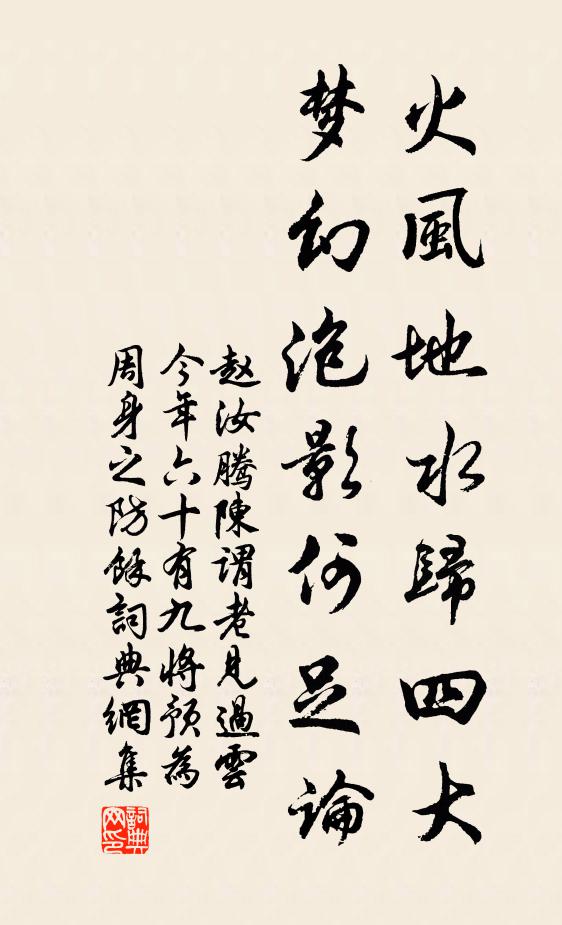 火風地水歸四大
梦幻泡影何足論
赵汝腾陳謂老見過雲
今年六十有九將預為
周身之防餘詞典網集
詞典网印